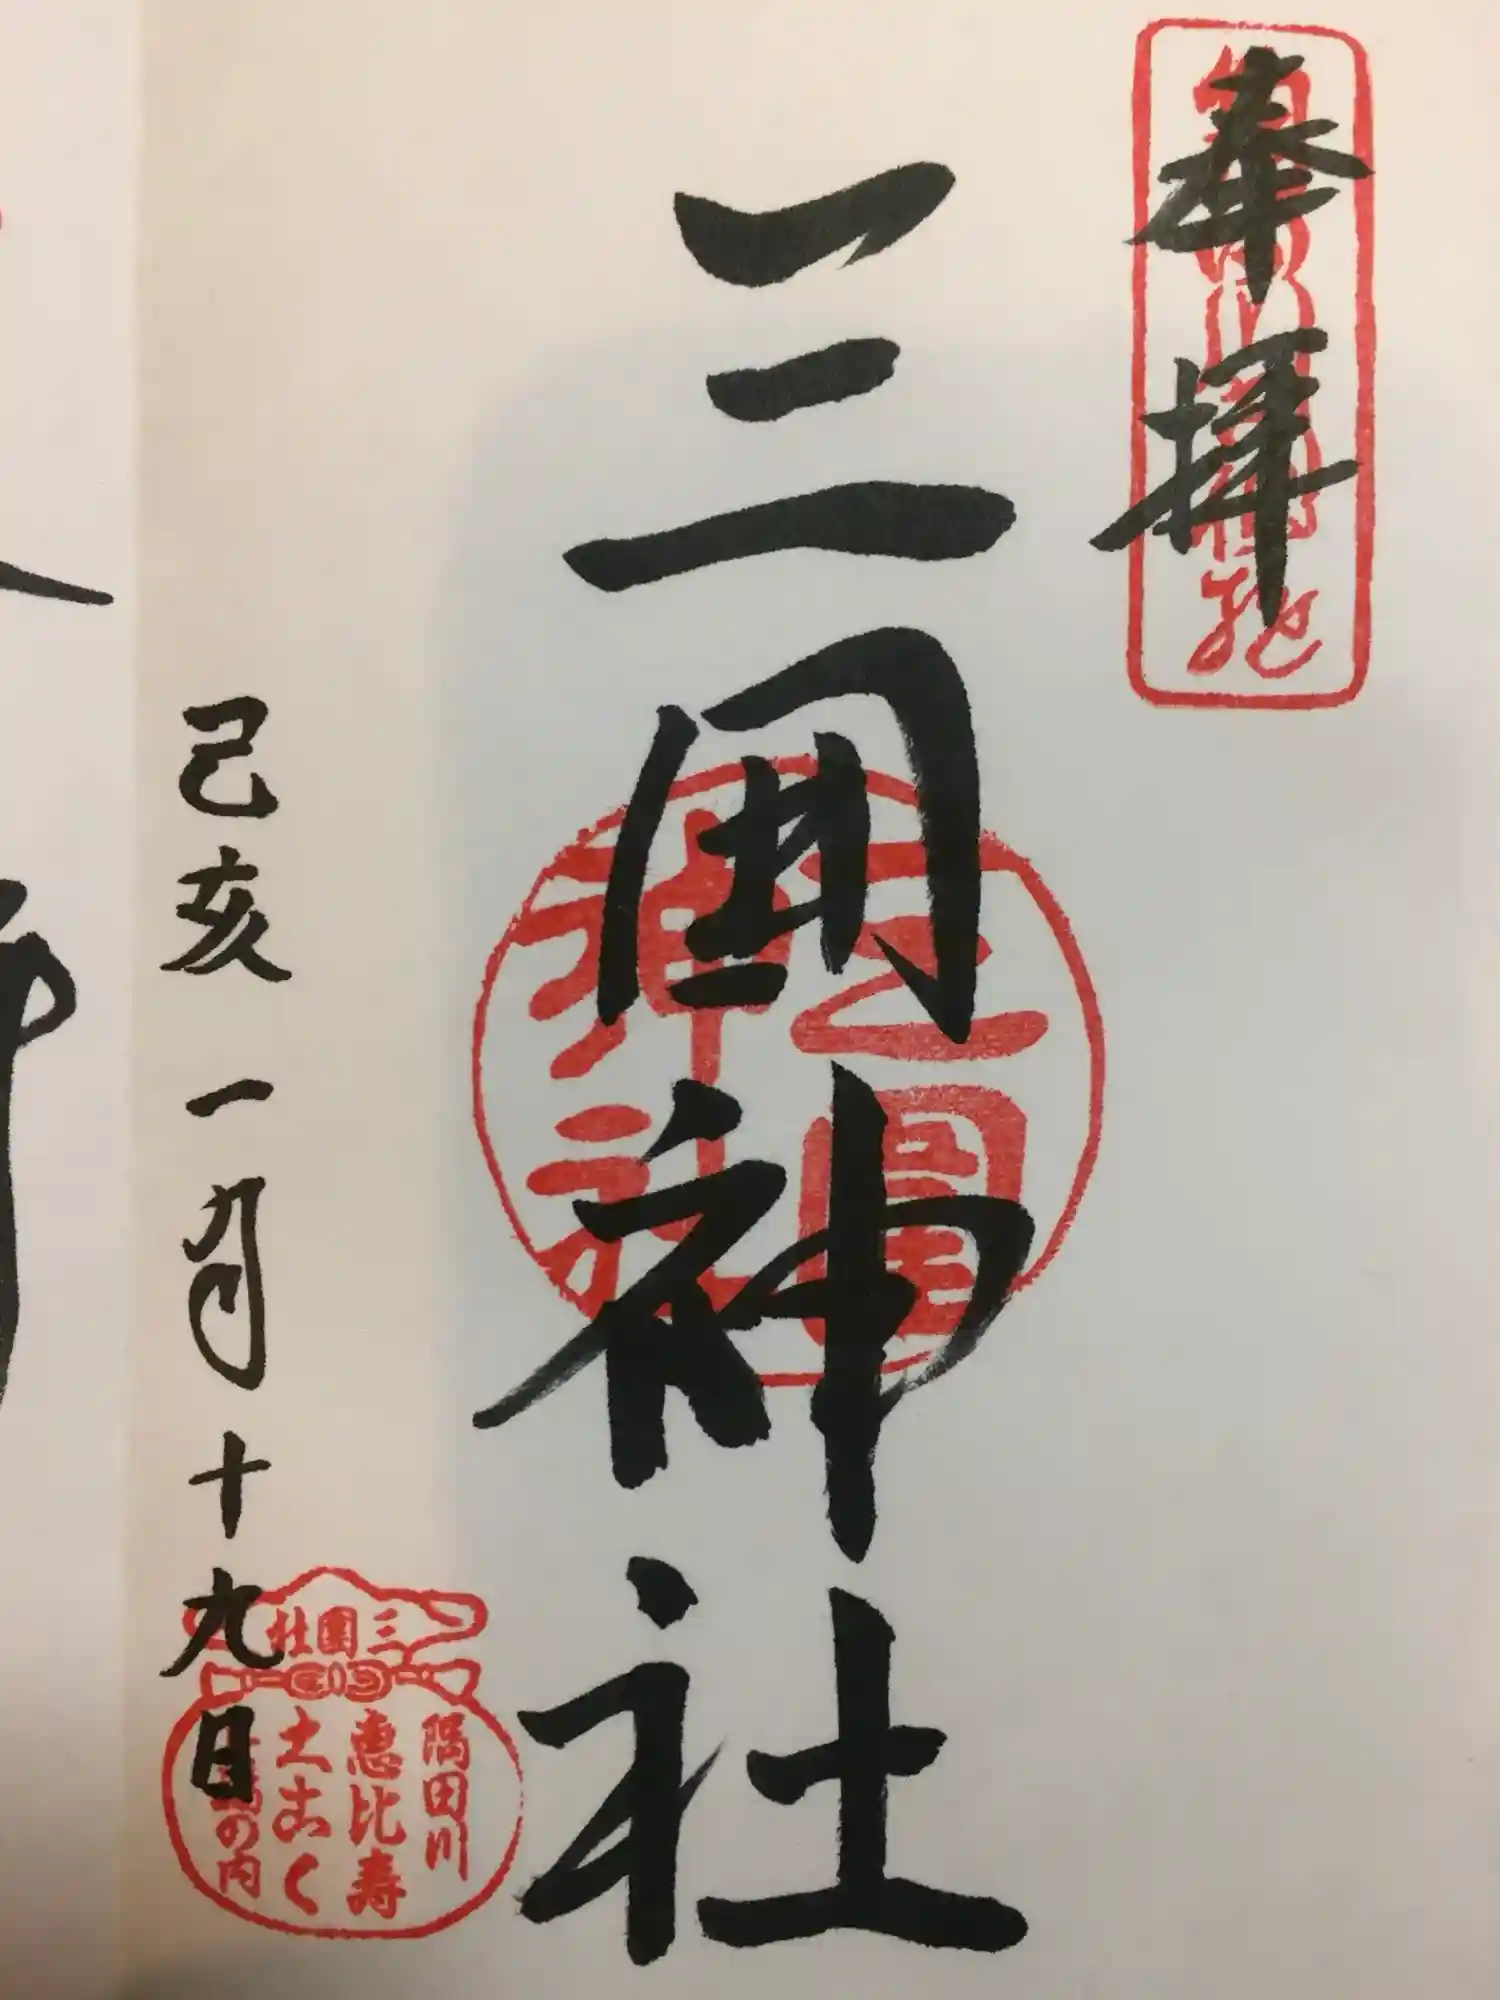 奉拝
三囲神社
三囲神社
己亥一月十九日
三囲社
隅田川
恵比寿
大こく
の内